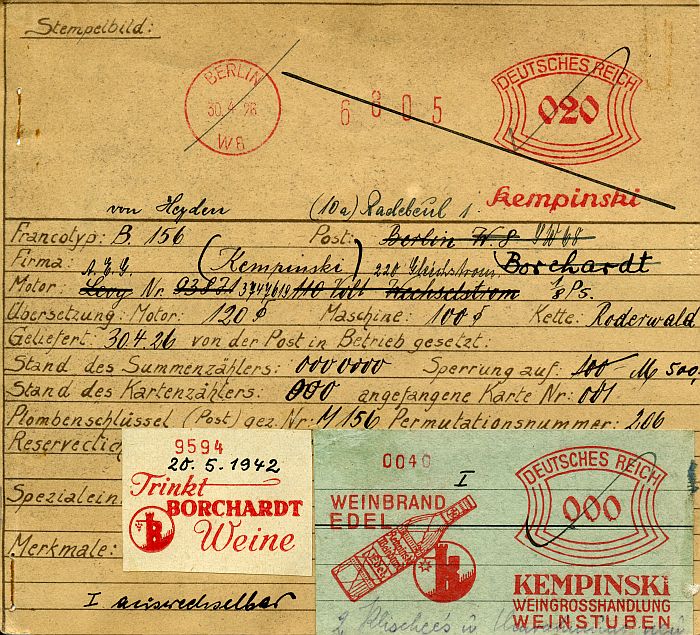 Stempelbild:
BERLIN
30.4.26
W 8
6805
DEUTSCHES REICH
020
Kempinski
von Heyden (10a) Radebeul 1
Francotyp: B. 156 Post: Berlin W. 8 SW 68
Firma: (Kempinski) Borchardt
A.E.G. 220 Gleichstrom
Motor: Levy Nr. 93831 3747619 110 Volt Wechselstrom 1/8 Ps.
Übersetzung: Motor: 120 Maschine: 100 Kette: Roderwald
Geliefert: 30.4.26 von der Post in Betrieb gesetzt:
Stand des Summenzählers: 0000000 Sperrung auf: 100 M 500.
Stand des Kartenzählers: 000 angefangene Karte Nr: 001
Plombenschlüssel (Post) gez. Nr: M 156 Permutationsnummer: 206
Spezialein
Merkmale:
9594
20.5.1942
Trinkt
BORCHARDT
Weine
0040
I
WEINBRAND
EDEL
DEUTSCHES REICH
000
KEMPINSKI
WEINGROSSHANDLUNG
WEINSTUBEN
I auswechselbar